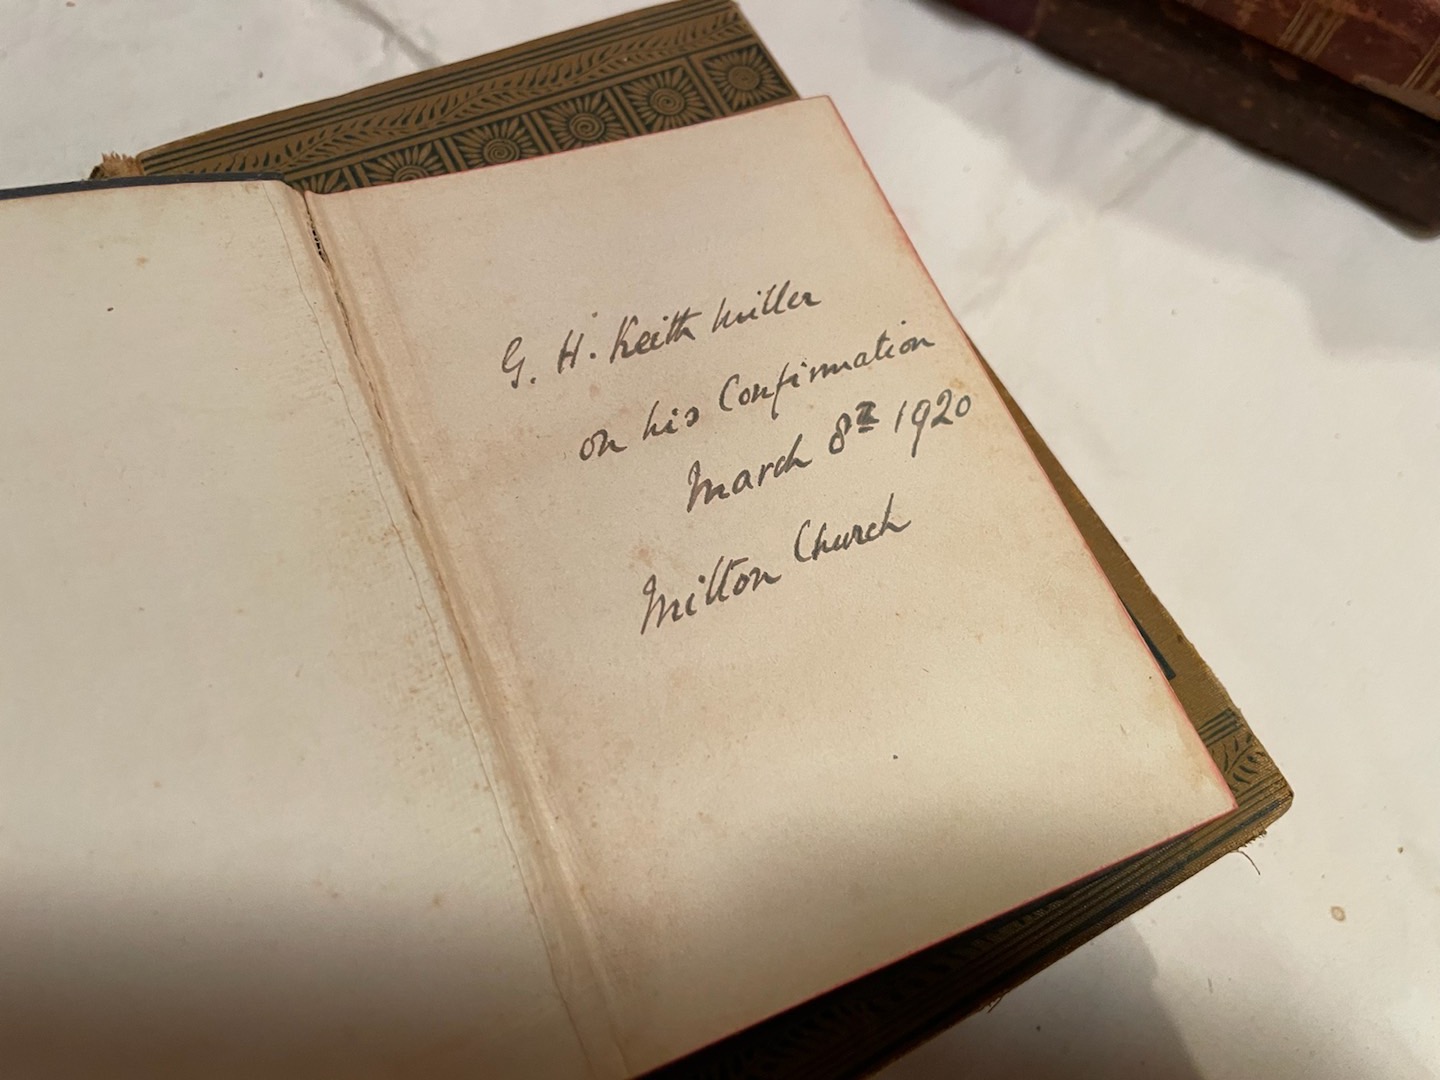 G. H. Keith Miller
on his Confirmation
March 8th 1920
Milton Church